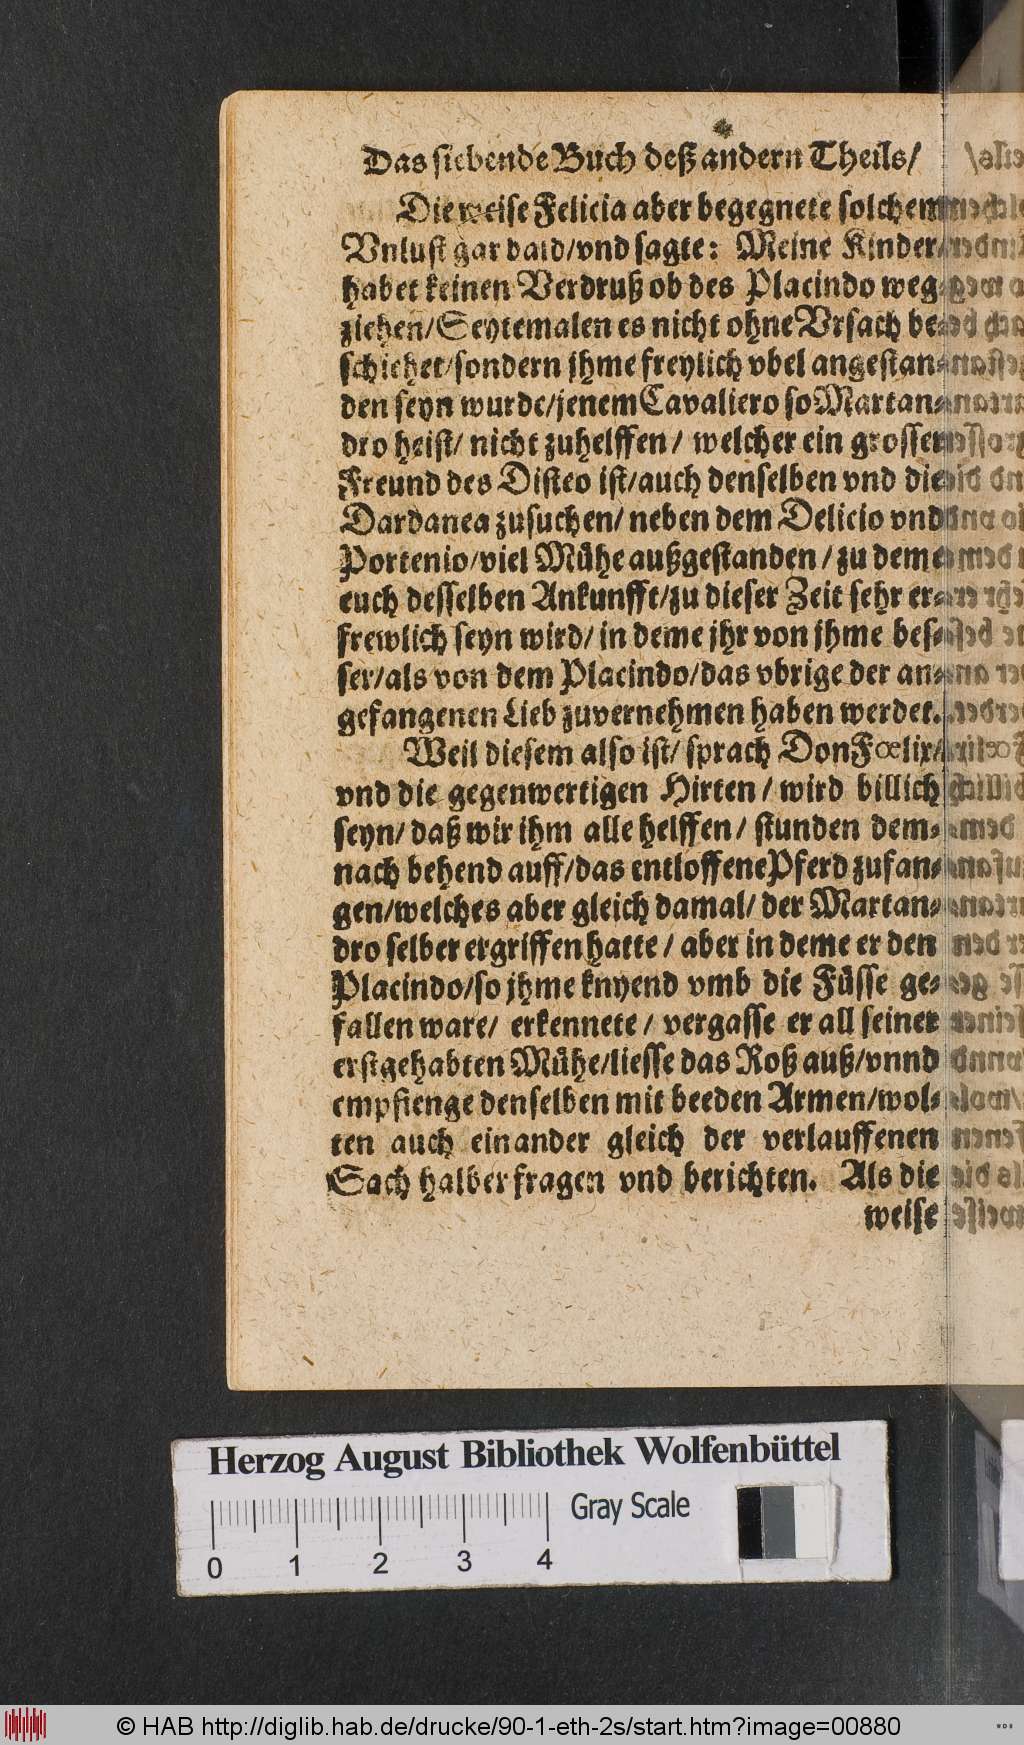 Das siebende Buch deß andern Theils/
Die weise Felicia aber begegnete solchem
Vnlust gar bald/vnd sagte: Meine Kinder/
habet keinen Verdruß ob des Placindo weg-
ziehen/Seytemalen es nicht ohne Vrsach be-
schiehet/sondern jhme freylich vbel angestan-
den seyn wurde/jenem Cavaliero so Martan-
dro heist/ nicht zuhelffen/ welcher ein grosser
Freund des Disteo ist/auch denselben vnd die
Dardanea zusuchen/ neben dem Delicio vnd
Portenio/viel Mühe außgestanden/ zu deme
euch desselben Ankunfft/zu dieser Zeit sehr er-
frewlich seyn wird/ in deme jhr von jhme bes-
ser/als von dem Placindo/das vbrige der an-
gefangenen Lieb zuvernehmen haben werdet.
Weil diesem also ist/ sprach Don Fœlix/
vnd die gegenwertigen Hirten/ wird billich
seyn/ daß wir ihm alle helffen/ stunden dem-
nach behend auff/das entloffene Pferd zufan-
gen/welches aber gleich damal/ der Martan-
dro selber ergriffen hatte/ aber in deme er den
Placindo/so jhme knyend vmb die Füsse ge-
fallen ware/ erkennete/ vergasse er all seiner
erstgehabten Mühe/liesse das Roß auß/vnnd
empfienge denselben mit beeden Armen/wol-
ten auch einander gleich der verlauffenen
Sach halber fragen vnd berichten. Als die
weise
Herzog August Bibliothek Wolfenbüttel
Gray Scale
0 1 2 3 4
© HAB http://diglib.hab.de/drucke/90-1-eth-2s/start.htm?image=00880